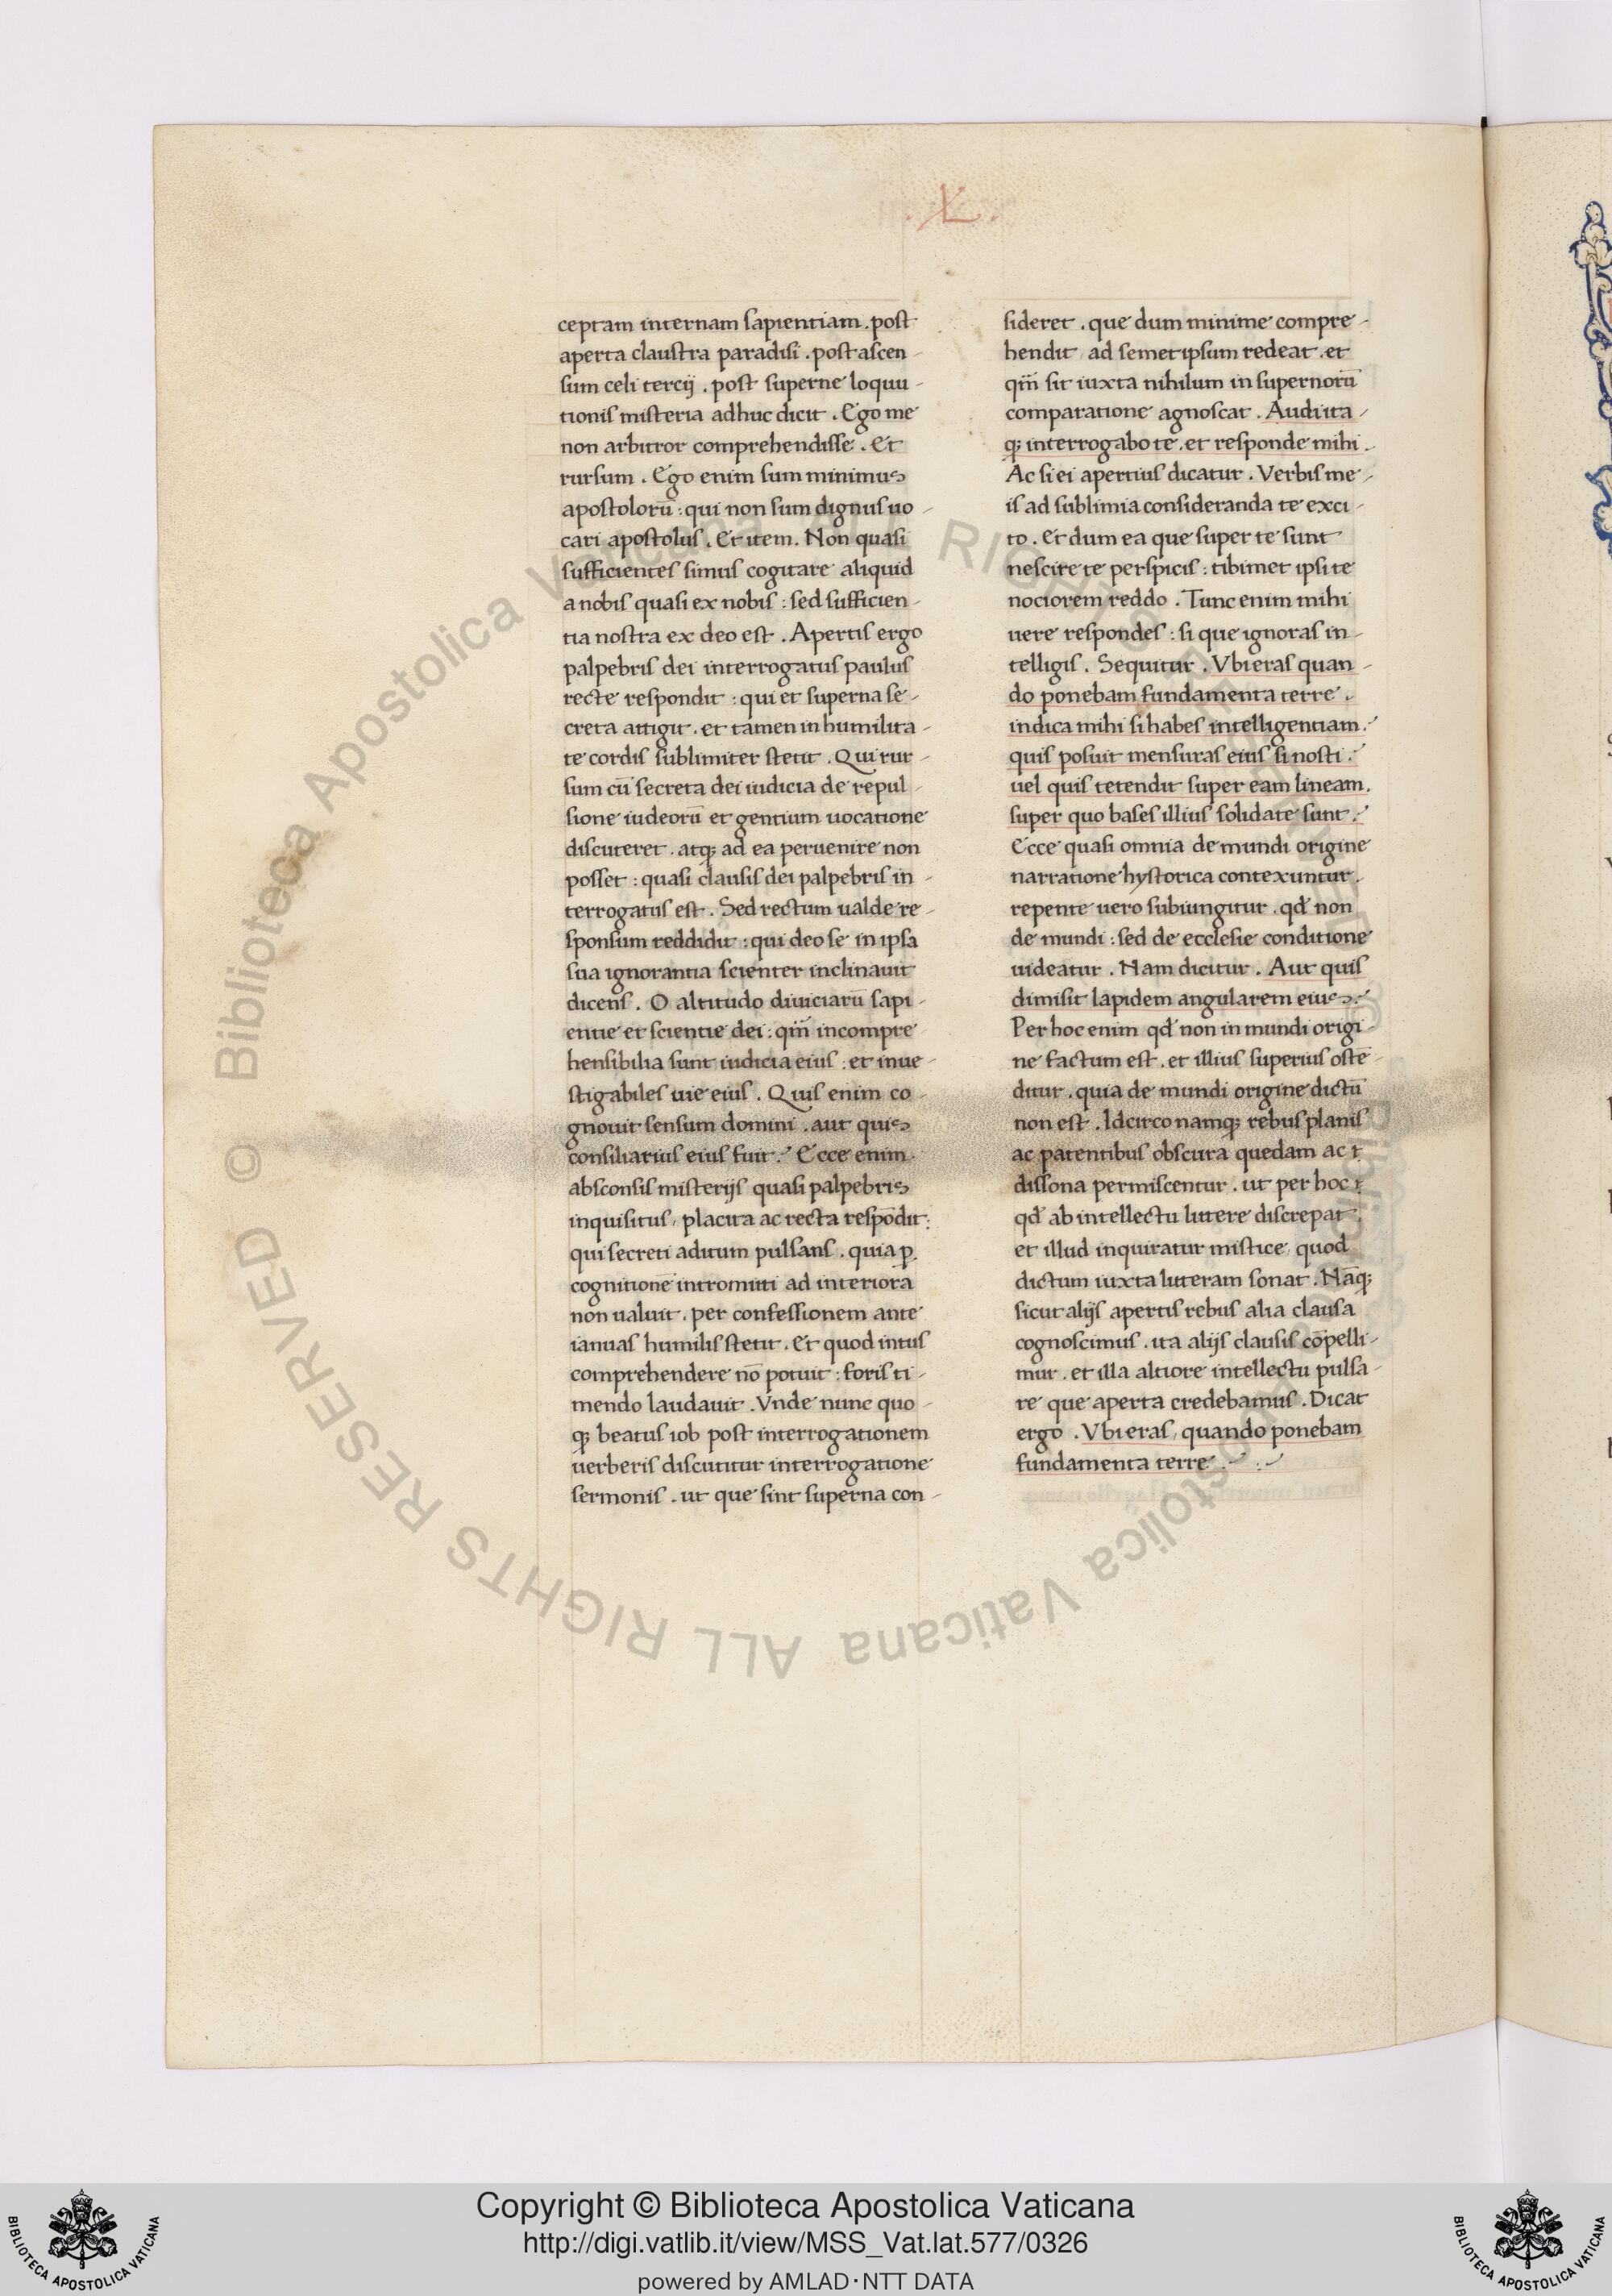 .XL.
ceptam internam sapientiam . post
aperta claustra paradisi . post ascen-
sum celi tercij . post superne loquu-
tionis misteria adhuc dicit . Ego me
non arbitror comprehendisse . Et
rursum . Ego enim sum minimus
apostolorū : qui non sum dignus uo-
cari apostolus . Et item . Non quasi
sufficientes simus cogitare aliquid
a nobis quasi ex nobis : sed sufficien-
tia nostra ex deo est . Apertis ergo
palpebris dei interrogatus paulus
recte respondit : qui et superna se-
creta attigit . et tamen in humilita-
te cordis sublimiter stetit . Qui rur-
sum cū secreta dei iudicia de repul-
sione iudeorū et gentium uocatione
discuteret . atq; ad ea peruenire non
posset : quasi clausis dei palpebris in-
terrogatus est . Sed rectum ualde re-
sponsum reddidit : qui deo se in ipsa
sua ignorantia scienter inclinauit
dicens . O altitudo diuiciarū sapi-
entie et scientie dei : qm̄ incompre
hensibilia sunt iudicia eius : et inue-
stigabiles uie eius . Quis enim co-
gnouit sensum domini . aut quis
consiliarius eius fuit . Ecce enim
absconsis misterijs quasi palpebris
inquisitus, placita ac recta respōdit :
qui secreti aditum pulsans . quia p̱
cognitionē intromitti ad interiora
non ualuit . per confessionem ante
ianuas humilis stetit . Et quod intus
comprehendere nō potuit : foris ti-
mendo laudauit . Vnde nunc quo-
q; beatus iob post interrogationem
uerberis discutitur interrogatione
sermonis . ut que sint superna con-
sideret . que dum minime compre-
hendit, ad semetipsum redeat . et
qm̄ sit iuxta nihilum in supernorū
comparatione agnoscat . Audi ita-
q; interrogabo te . et responde mihi .
Ac si ei apertius dicatur . Verbis me-
is ad sublimia consideranda te exci-
to . Et dum ea que super te sunt
nescire te perspicis : tibimet ipsi te
nociorem reddo . Tunc enim mihi
uere respondes : si que ignoras in-
telligis . Sequitur . Vbi eras quan-
do ponebam fundamenta terre .
indica mihi si habes intelligentiam .
quis posuit mensuras eius si nosti .
uel quis tetendit super eam lineam .
super quo bases illius solidate sunt .
Ecce quasi omnia de mundi origine
narratione hystorica contexuntur .
repente uero subiungitur . qd̄ non
de mundi : sed de ecclesie conditione
uideatur . Nam dicitur . Aut quis
dimisit lapidem angularem eius .
Per hoc enim qd̄ non in mundi origi-
ne factum est . et illius superius ostē-
ditur . quia de mundi origine dictū
non est . Idcirco namq; rebus planis
ac patentibus obscura quedam ac
dissona permiscentur . ut per hoc
qd̄ ab intellectu littere discrepat,
et illud inquiratur mistice, quod
dictum iuxta litteram sonat . Nāq;
sicut alijs apertis rebus alia clausa
cognoscimus . ita alijs clausis cōpelli-
mur . et illa altiore intellectu pulsa-
re que aperta credebamus . Dicat
ergo . Vbi eras, quando ponebam
fundamenta terre .
© Biblioteca Apostolica Vaticana ALL RIGHTS RESERVED
© Biblioteca Apostolica Vaticana ALL RIGHTS RESERVED
Copyright © Biblioteca Apostolica Vaticana
http://digi.vatlib.it/view/MSS_Vat.lat.577/0326
powered by AMLAD·NTT DATA
BIBLIOTECA APOSTOLICA VATICANA
BIBLIOTECA APOSTOLICA VATICANA